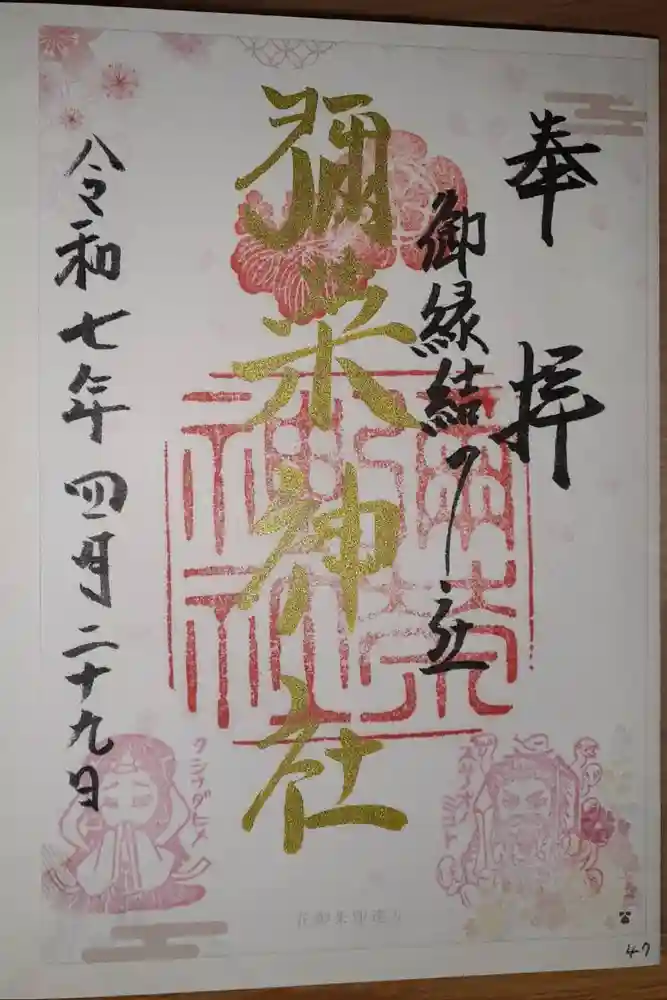 奉拝
御縁結び社
彌栄神社
令和七年四月二十九日
彌栄神社
スサノオノミコト
クシナダヒメ
47